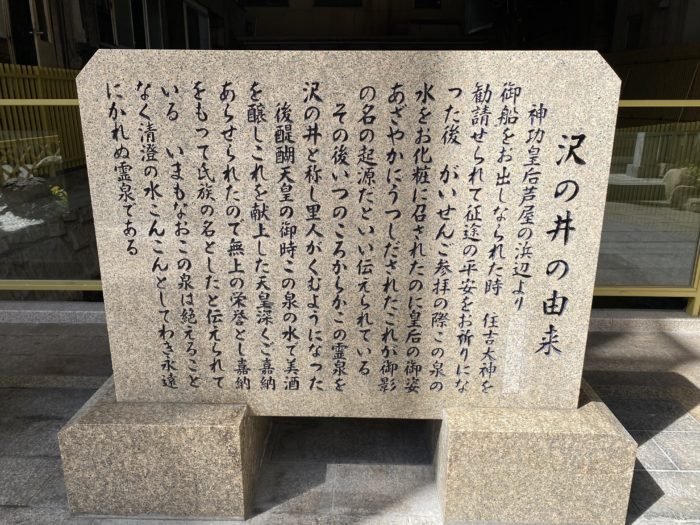 沢の井の由来
神功皇后芦屋の浜辺より
御船をお出しなられた時　住吉大神を
勧請せられて征途の平安をお祈りにな
った後　がいせんご参拝の際この泉の
水をお化粧に召されたのに皇后の御姿
あざやかにうつしだされたこれが御影
の名の起源だといい伝えられている
その後いつのころからかこの霊泉を
沢の井と称し里人がくむようになった
後醍醐天皇の御時この泉の水で美酒
を醸しこれを献上した天皇深くご嘉納
あらせられたので無上の栄誉とし嘉納
をもって氏族の名としたと伝えられて
いる　いまもなおこの泉は絶えること
なく清澄の水こんこんとしてわき永遠
にかれぬ霊泉である